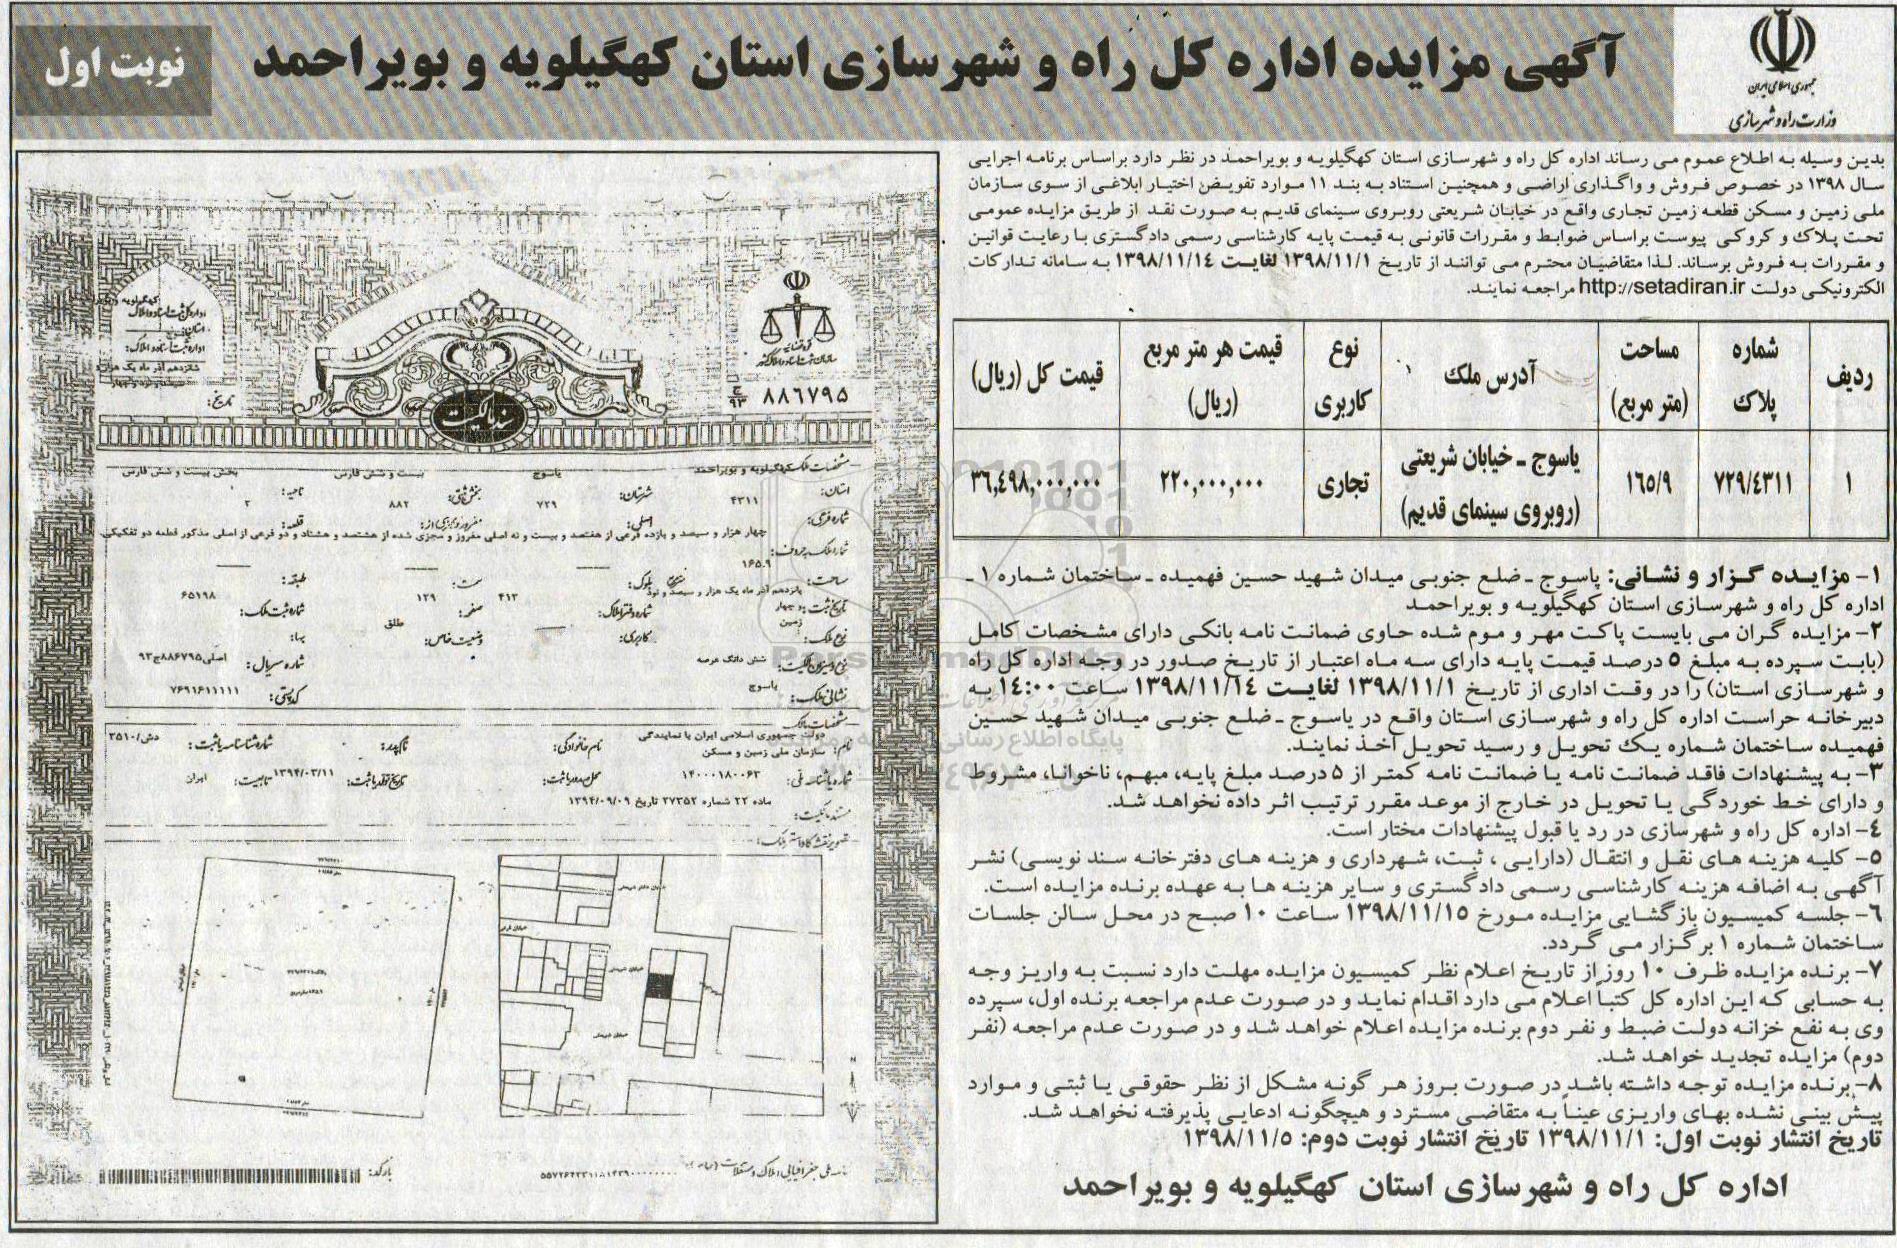 آگهی مزایده اداره کل راه و شهرسازی استان کهگیلویه و بویراحمد
نوبت اول
جمهوری اسلامی ایران
وزارت راه و شهرسازی
بدین وسیله به اطلاع عموم می رساند اداره کل راه و شهرسازی استان کهگیلویه و بویراحمد در نظر دارد براساس برنامه اجرایی
سال ۱۳۹۸ در خصوص فروش و واگذاری اراضی و همچنین استناد به بند ۱۱ موارد تفویض اختیار ابلاغی از سوی سازمان
ملی زمین و مسکن قطعه زمین تجاری واقع در خیابان شریعتی روبروی سینمای قدیم به صورت نقد از طریق مزایده عمومی
تحت پلاک و کروکی پیوست براساس ضوابط و مقررات قانونی به قیمت پایه کارشناسی رسمی دادگستری با رعایت قوانین
و مقررات به فروش برساند. لذا متقاضیان محترم می توانند از تاریخ ۱۳۹۸/۱۱/۱ لغایت ۱۳۹۸/۱۱/۱٤ به سامانه تدارکات
الکترونیکی دولت http://setadiran.ir مراجعه نمایند.
ردیف شماره پلاک مساحت (متر مربع) آدرس ملک نوع کاربری قیمت هر متر مربع (ریال) قیمت کل (ریال)
۱ ۷۲۹/٤۳۱۱ ۱٦٥/۹ یاسوج ـ خیابان شریعتی (روبروی سینمای قدیم) تجاری ۲۲۰,۰۰۰,۰۰۰ ۳٦,٤۹۸,۰۰۰,۰۰۰
۱- مزایده گزار و نشانی: یاسوج ـ ضلع جنوبی میدان شهید حسین فهمیده ـ ساختمان شماره ۱ ـ
اداره کل راه و شهرسازی استان کهگیلویه و بویراحمد
۲- مزایده گران می بایست پاکت مهر و موم شده حاوی ضمانت نامه بانکی دارای مشخصات کامل
(بابت سپرده به مبلغ ٥ درصد قیمت پایه دارای سه ماه اعتبار از تاریخ صدور در وجه اداره کل راه
و شهرسازی استان) را در وقت اداری از تاریخ ۱۳۹۸/۱۱/۱ لغایت ۱۳۹۸/۱۱/۱٤ ساعت ۱٤:۰۰ به
دبیرخانه حراست اداره کل راه و شهرسازی استان واقع در یاسوج ـ ضلع جنوبی میدان شهید حسین
فهمیده ساختمان شماره یک تحویل و رسید تحویل اخذ نمایند.
۳- به پیشنهادات فاقد ضمانت نامه یا ضمانت نامه کمتر از ٥ درصد مبلغ پایه، مبهم، ناخوانا، مشروط
و دارای خط خوردگی یا تحویل در خارج از موعد مقرر ترتیب اثر داده نخواهد شد.
٤- اداره کل راه و شهرسازی در رد یا قبول پیشنهادات مختار است.
٥- کلیه هزینه های نقل و انتقال (دارایی ، ثبت، شهرداری و هزینه های دفترخانه سند نویسی) نشر
آگهی به اضافه هزینه کارشناسی رسمی دادگستری و سایر هزینه ها به عهده برنده مزایده است.
٦- جلسه کمیسیون بازگشایی مزایده مورخ ۱۳۹۸/۱۱/۱٥ ساعت ۱۰ صبح در محل سالن جلسات
ساختمان شماره ۱ برگزار می گردد.
۷- برنده مزایده ظرف ۱۰ روز از تاریخ اعلام نظر کمیسیون مزایده مهلت دارد نسبت به واریز وجه
به حسابی که این اداره کل کتباً اعلام می دارد اقدام نماید و در صورت عدم مراجعه برنده اول، سپرده
وی به نفع خزانه دولت ضبط و نفر دوم برنده مزایده اعلام خواهد شد و در صورت عدم مراجعه (نفر
دوم) مزایده تجدید خواهد شد.
۸- برنده مزایده توجه داشته باشد در صورت بروز هر گونه مشکل از نظر حقوقی یا ثبتی و موارد
پیش بینی نشده بهای واریزی عیناً به متقاضی مسترد و هیچگونه ادعایی پذیرفته نخواهد شد.
تاریخ انتشار نوبت اول: ۱۳۹۸/۱۱/۱ تاریخ انتشار نوبت دوم: ۱۳۹۸/۱۱/٥
اداره کل راه و شهرسازی استان کهگیلویه و بویراحمد
قوه قضائیه
سازمان ثبت اسناد و املاک کشور
۸۸۶۷۹۵ ج ۹۳
اداره ثبت اسناد و املاک:
تاریخ:
سند مالکیت
مشخصات ملک
استان: کهگیلویه و بویراحمد شهرستان: یاسوج بخش ثبتی: بیست و شش فارس ناحیه: بخش بیست و شش فارس
شماره فرعی: ۴۳۱۱ اصلی: ۷۲۹ مفروز و مجزی از: ۸۸۲ قطعه: ۲
شماره ملک به حروف: چهار هزار و سیصد و یازده فرعی از هفتصد و بیست و نه اصلی مفروز و مجزی شده از هشتصد و هشتاد و دو فرعی از اصلی مذکور قطعه دو تفکیکی
مساحت: ۱۶۵.۹ بلوک: سمت: طبقه:
تاریخ ثبت: پانزدهم آذر ماه یک هزار و سیصد و نود و چهار شماره دفتر املاک: ۴۱۳ صفحه: ۱۲۹ شماره ثبت ملک: ۶۵۱۹۸
نوع ملک: زمین کاربری: وضعیت خاص: طلق بها:
نوع و میزان مالکیت: شش دانگ عرصه شماره سریال: اصلی ۸۸۶۷۹۵ج۹۳
نشانی ملک: یاسوج کد پستی: ۷۶۹۱۶۱۱۱۱۱
مشخصات مالک
نام: دولت جمهوری اسلامی ایران با نمایندگی سازمان ملی زمین و مسکن نام خانوادگی: نام پدر: شماره شناسنامه یا ثبت: دش/۳۵۱۰
شماره یا شناسه ملی: ۱۴۰۰۰۱۸۰۰۶۳ محل صدور یا ثبت: تاریخ تولد یا ثبت: ۱۳۹۴/۰۳/۱۱ تابعیت: ایران
مستند مالکیت: ماده ۲۲ شماره ۲۷۳۵۲ تاریخ ۱۳۹۴/۰۹/۰۹
تصویر نقشه کاداستر ملک:
خیابان شریعتی
N
بارکد: